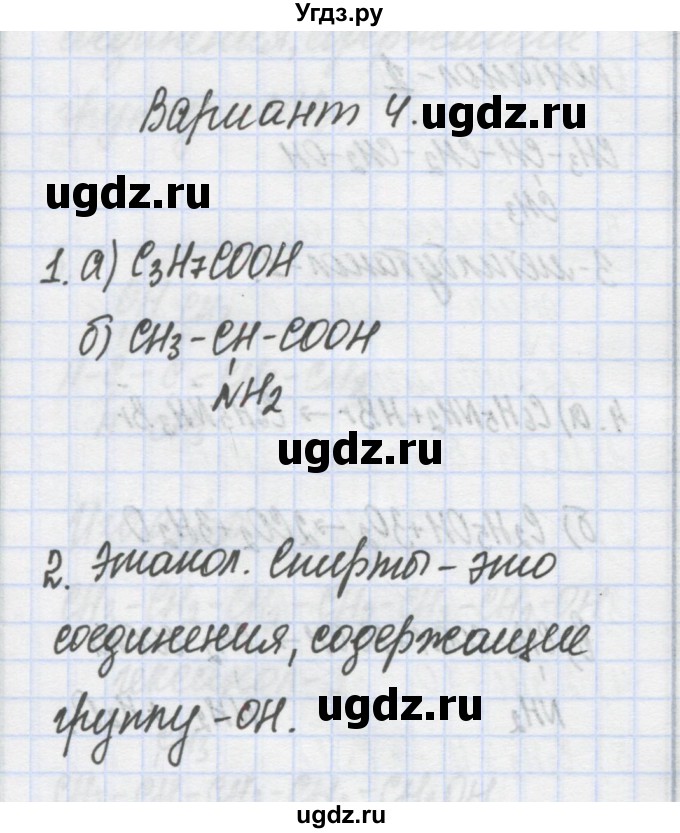 Угдз.ру
Вариант 4.
ugdz.ru
ugdz.ru
1. а) C3H7COOH
б) CH3-CH-COOH
NH2
ugdz.ru
2. Этанол. Спирты - это
соединения, содержащие
группу -OH.
ugdz.ru
ugdz.ru